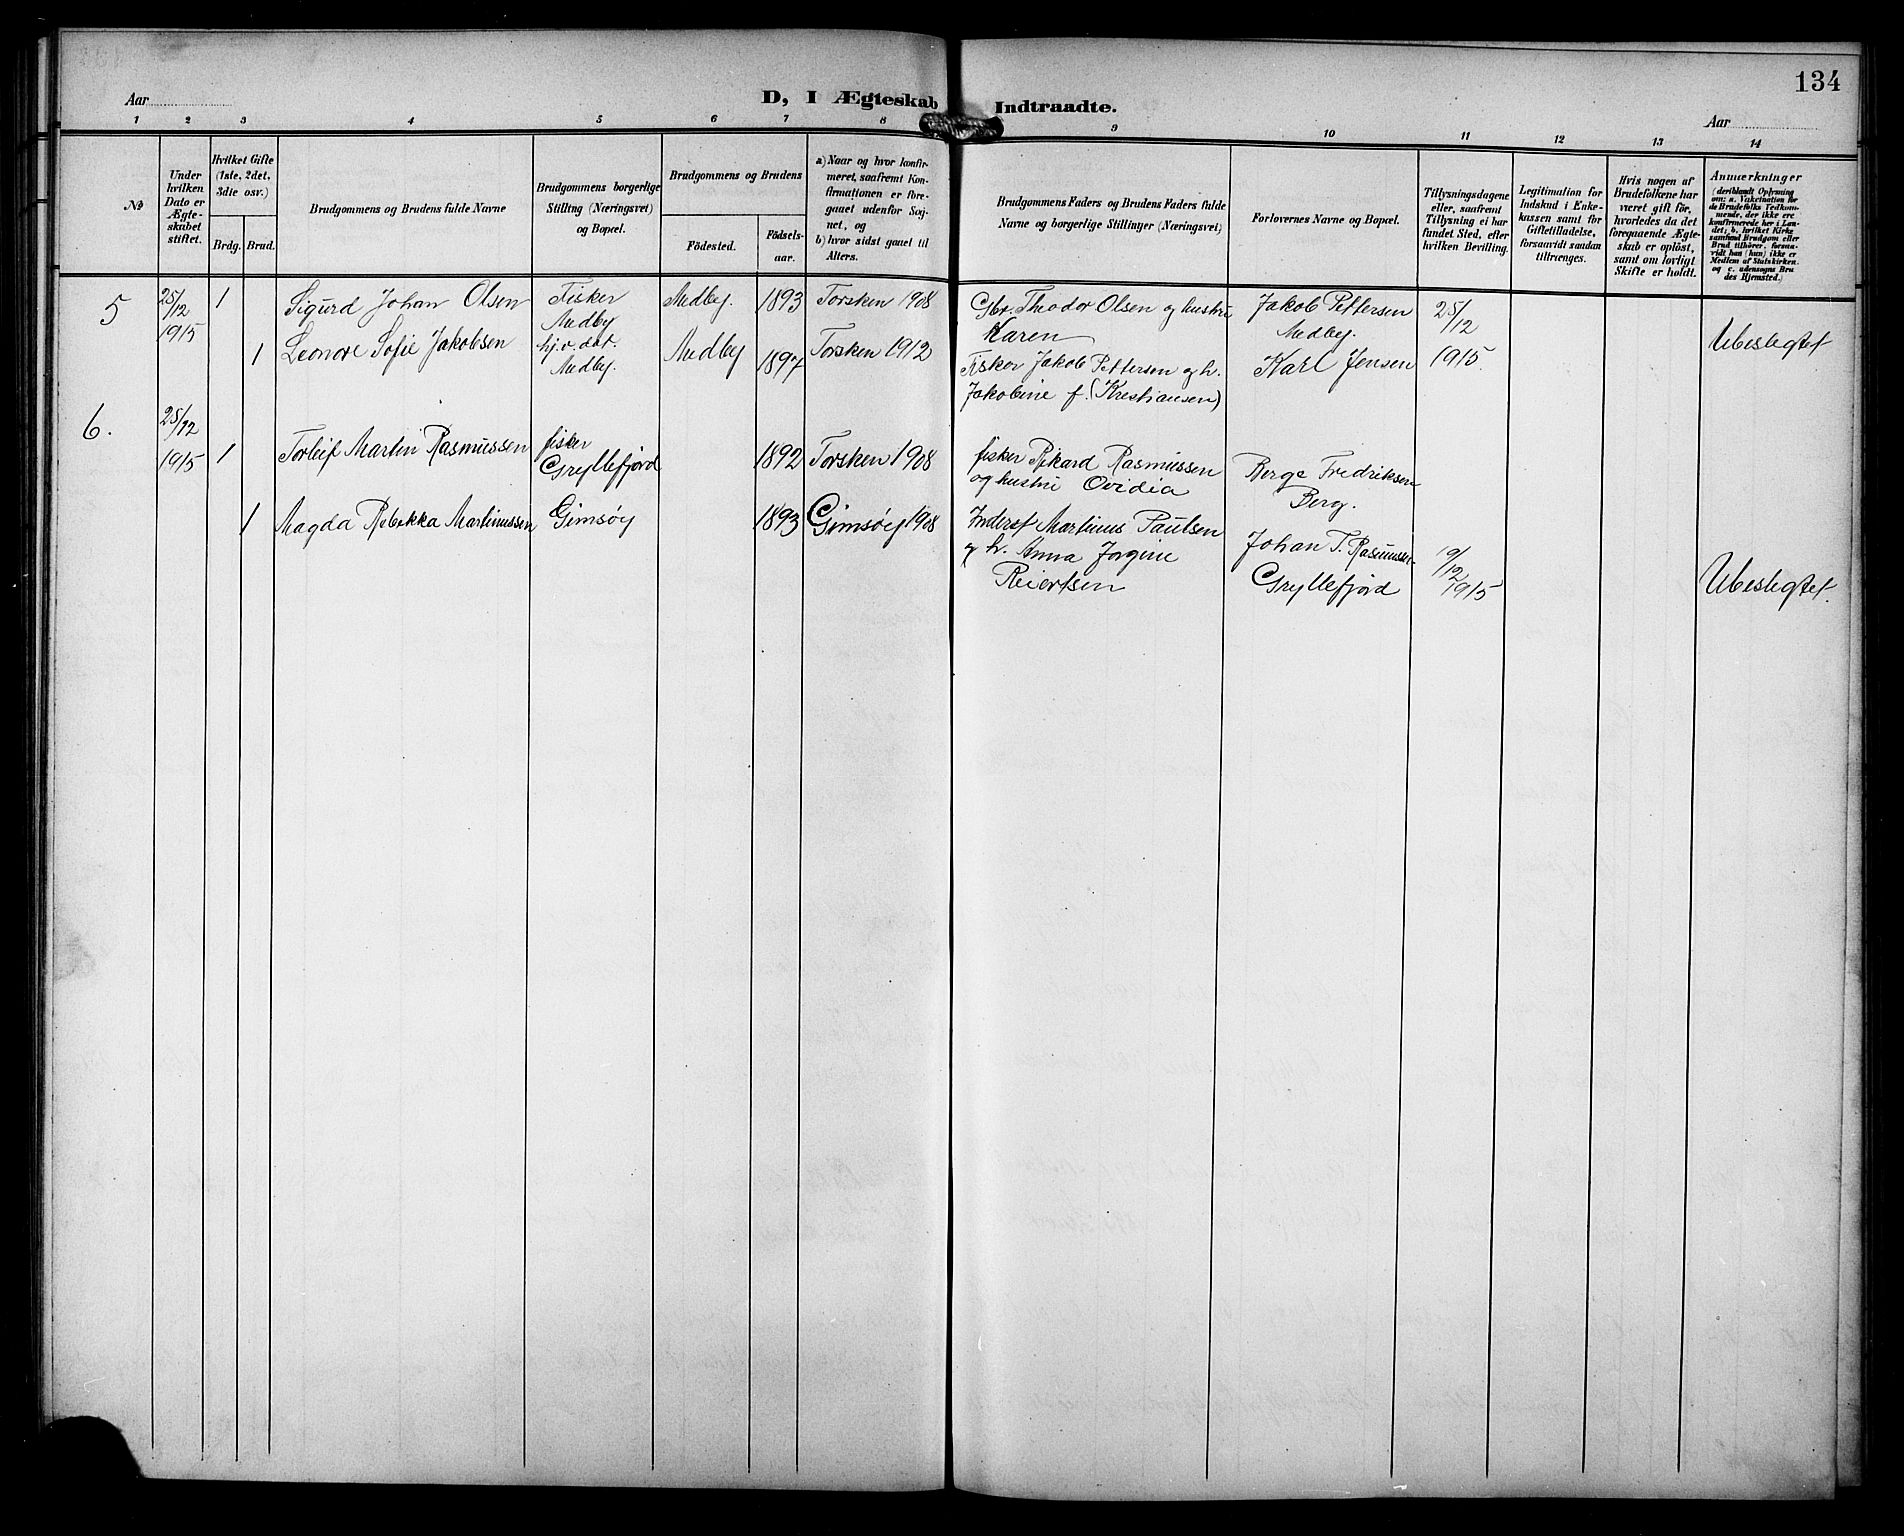 134
Aar
D, I Ægteskab Indtraadte.
Aar
1 2 3 4 5 6 7 8 9 10 11 12 13 14
No
Under
hvilken
Dato er
Ægte-
skabet
stiftet.
Hvilket Gifte
(1ste, 2det,
3die osv.)
Brdg. Brud.
Brudgommens og Brudens fulde Navne
Brudgommens borgerlige
Stilling (Næringsvei)
og Bopæl.
Brudgommens og Brudens
Födested.
Födsels-
aar.
a) Naar og hvor konfir-
meret, saafremt Kon-
firmationen er fore-
gaaet udenför Sog-
net, og
b) hvor sidst gaaet til
Alters.
Brudgommens Faders og Brudens Faders fulde
Navne og borgerlige Stillinger (Næringsvei)
Forlovernes Navne og Bopæl.
Tillysningsdagene
eller, saafremt
Tillysning ei har
fundet Sted, efter
hvilken Bevilling.
Legitimation for
Indskud i Enke-
kassen samt for
Giftetilladelse,
forsaavidt saadan
tiltrænges.
Hvis nogen af
Brudefolkene har
været gift för,
hvorledes da det
foregaaende Ægte-
skab er oplöst,
samt om lovligt
Skifte er holdt.
Anmærkninger
(deriblandt Oplysning
om: a. Vaccination for
de Brudefolks Vedkom-
mende, der ikke ere
konfirmerede her i Lan-
det; b. hvilket Kirke-
samfund Brudgom eller
Brud tilhörer, forsaa-
vidt han (hun) ikke er
Medlem af Statskirken.
og c. udensogns Bru-
des Hjemsted.)
5 25/12 1915 1 Sigurd Johan Olsen Fisker Medby Medby. 1893 Torsken 1908 Gbr. Theodor Olsen og hustru Karen Jakob Pettersen Medby. 25/12 1915. Ubeslegtet
1 Leonore Sofie Jakobsen hj.v. det. Medby. Medby 1897 Torsken 1912 Fisker Jakob Pettersen og h. Jakobine f. (Kristiansen) Karl Jensen
6. 25/12 1915 1 Torleif Martin Rasmussen fisker Gryllefjord 1892 Torsken 1908 fisker Rikard Rasmussen og hustru Ovidia Berge Fredriksen Berg.
1 Magda Rebekka Martinussen Gimsøy 1893 Gimsøy 1908 Inderst Martinus Paulsen og h. Anna Jorgine Reiertsen Johan T. Rasmussen Gryllefjord 9/12 1915 Ubeslegtet.